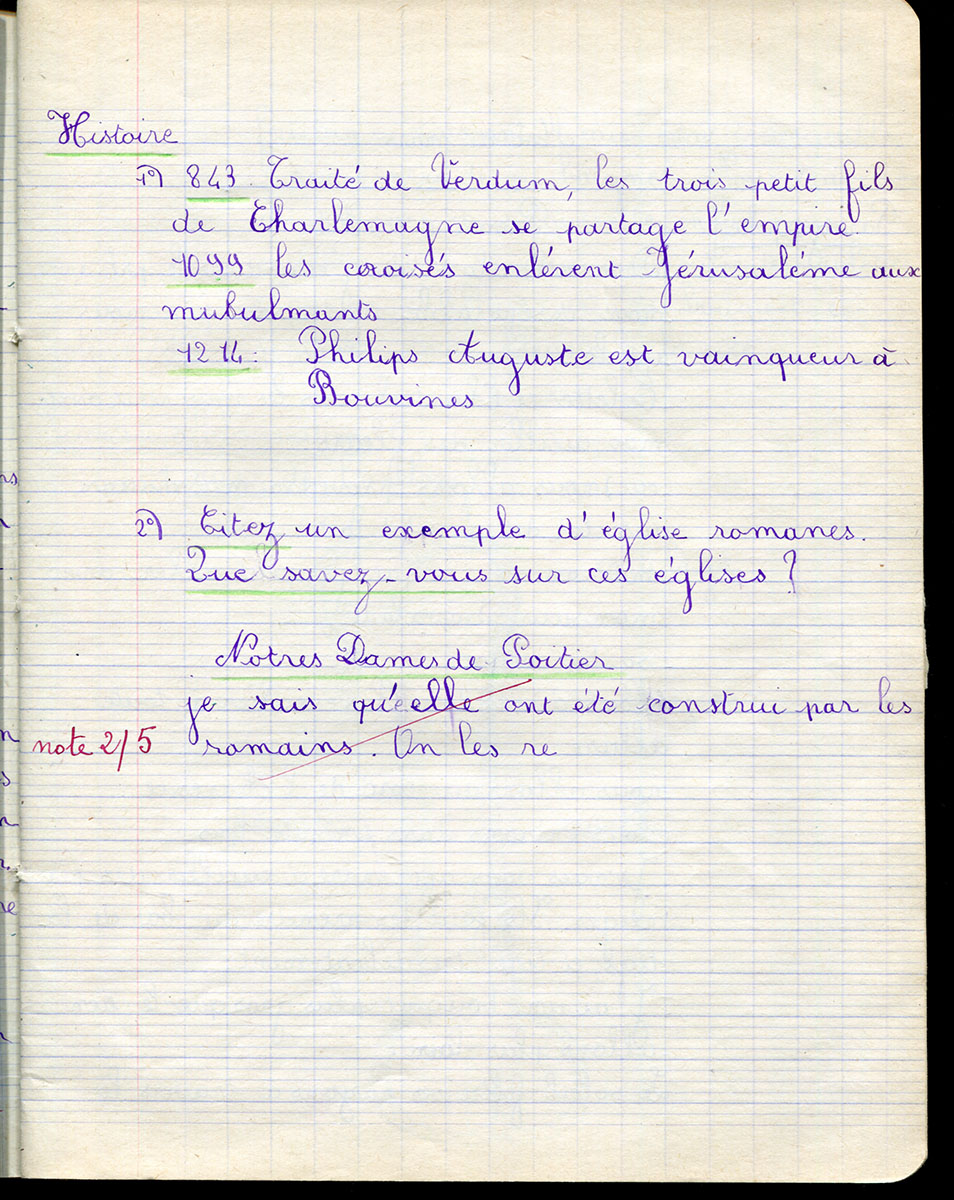 Histoire
1°) 843. Traité de Verdum, les trois petit fils
de Charlemagne se partage l'empire.
1099 les croisés enlérent Jérusaléme aux
mubulmants
1214: Philips Auguste est vainqueur à
Bouvines
2°) Citez un exemple d'église romanes.
Que savez-vous sur ces églises ?
Notres Dames de Poitier
je sais qu'elle ont été construi par les
note 2/5 romains. On les re